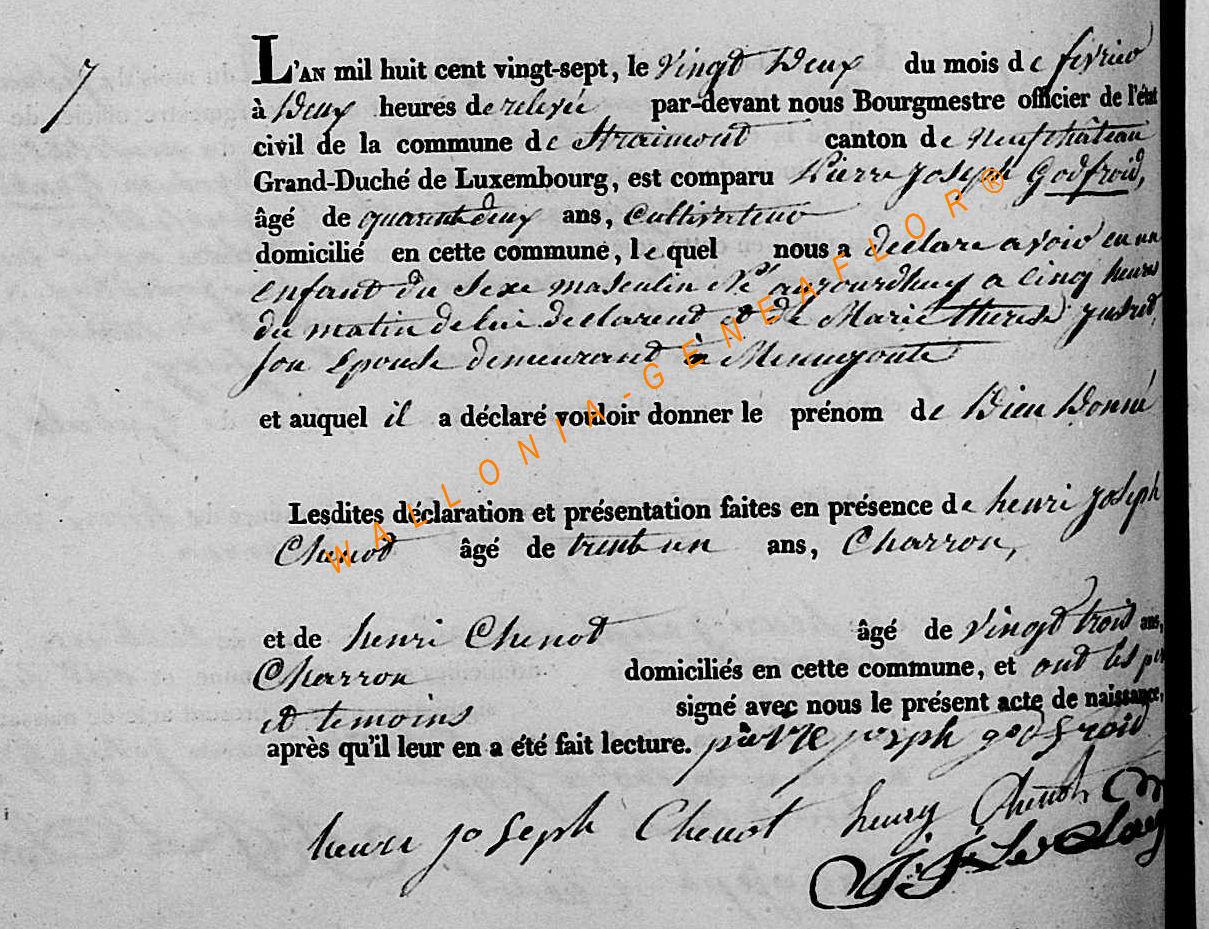 7
L'AN mil huit cent vingt-sept, le vingt deux du mois de fevrier
à deux heures de relevée par-devant nous Bourgmestre officier de l'état
civil de la commune de Straimont canton de Neufchâteau
Grand-Duché de Luxembourg, est comparu Pierre Joseph Godfroid,
âgé de quarante deux ans, Cultivateur
domicilié en cette commune, lequel nous a declaré avoir eu un
enfant du sexe masculin né aujourdhuy a cinq heures
du matin de lui declarent et de Marie therese
son epouse demeurant à Menugoutte
et auquel il a déclaré vouloir donner le prénom de Dieu Donné
Lesdites déclaration et présentation faites en présence de henri Joseph
Chenot âgé de trente un ans, Charron,
et de henri Chenot âgé de vingt trois ans,
Charron domiciliés en cette commune, et ont les per
et temoins signé avec nous le présent acte de naissance,
après qu'il leur en a été fait lecture. pierre joseph godfroid
henri joseph Chenot henry Chenot
WALLONIA-GENEAFLOR®